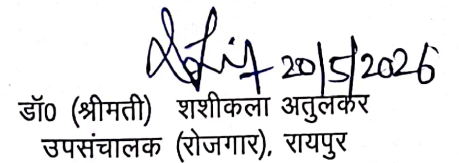 20/5/2026
डॉ0 (श्रीमती) शशीकला अतुलकर
उपसंचालक (रोजगार), रायपुर